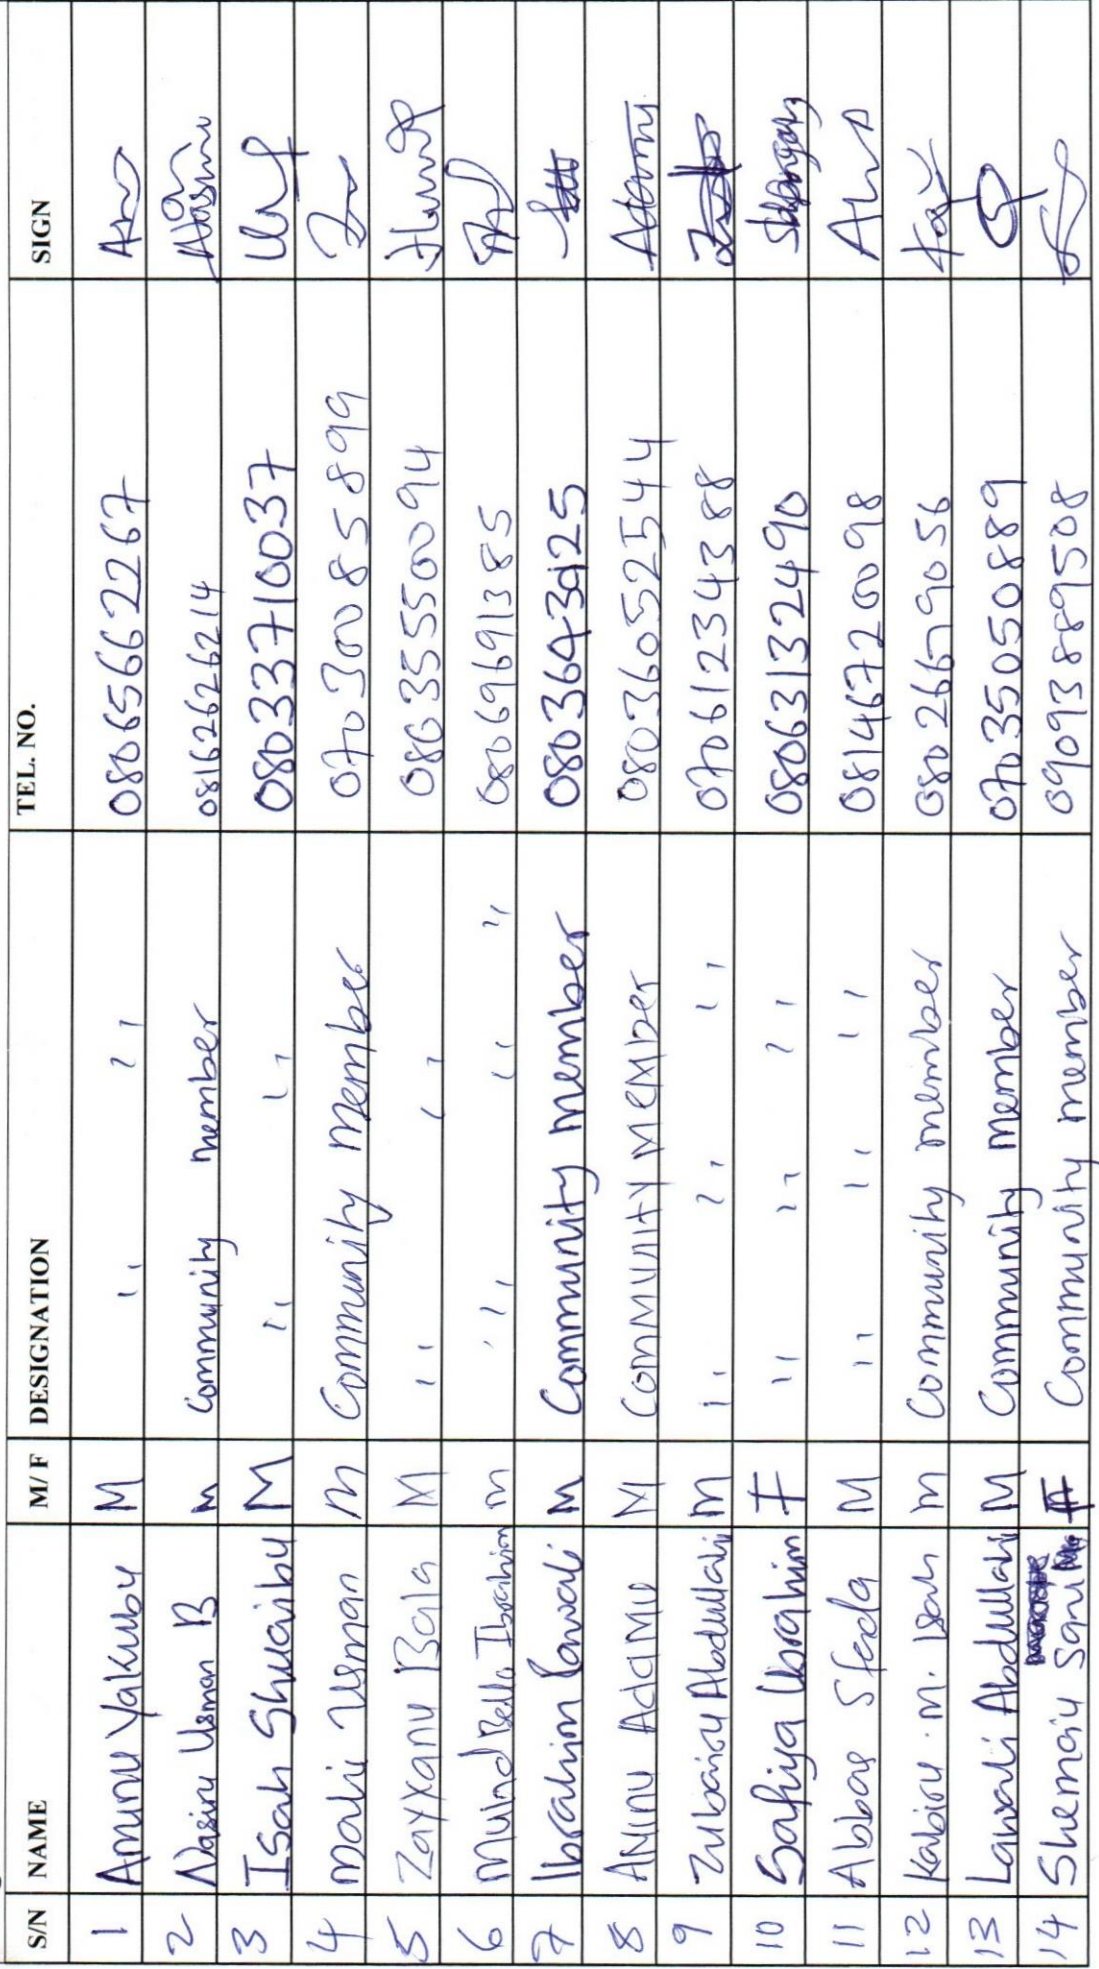 S/N NAME M/F DESIGNATION TEL. NO. SIGN
1 Aminu Yakubu M " " 08065662267
2 Nasiru Usman B M Community member 08162626214
3 Isah Shuaibu M " " 08033710037
4 Maliu Usman M Community Member 07030085899
5 Zayyanu Bala M " " 08035550094
6 Bello Ibrahim m " " " 08069691385
7 Ibrahim Lawali M Community member
8 Aminu Adamu M Community Member 08036052544
9 Zubairu Abdullahi m " " " 07061234388
10 Safiya Ibrahim F " " " 08063132490
11 Abbas S fada M " " " 08146720098
12 Kabiru .M. Isah m Community member 08026679056
13 Lawali Abdullahi M Community member 07035050889
14 Sani Community member 09093889508